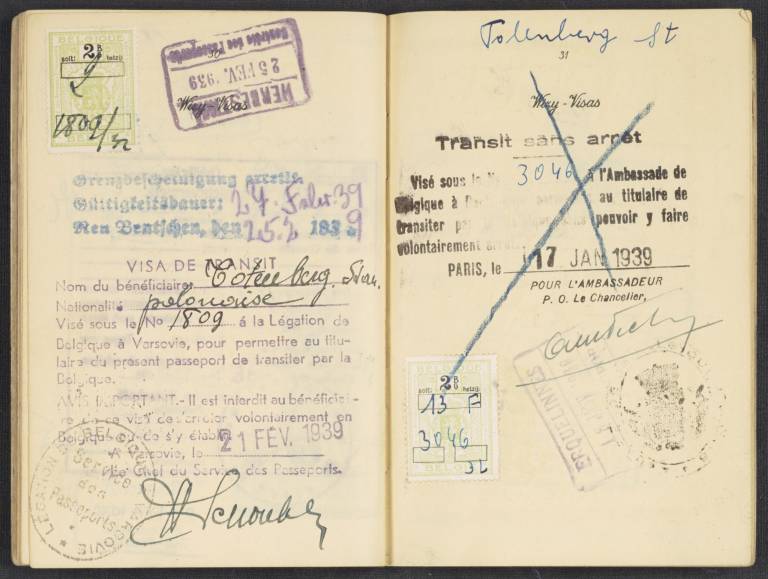 BELGIQUE
2 B
soit: belg.
1809/32
30
Wizy-Visas
HERBESTHAL
25 FEV. 1939
Contrôle des Passeports
Grenzbescheinigung
Gültigkeitsdauer: 27. Febr. 39
Neu Bentschen, den 25.2 1939
VISA DE TRANSIT
Nom du bénéficiaire:
Nationalité polonaise
Visé sous le No 1809 á la Légation de
Belgique à Varsovie, pour permettre au titu-
laire du présent passeport de transiter par la
Belgique.
AVIS IMPORTANT.- Il est interdit au bénéficiai-
re de ce visa de s'arrêter volontairement en
Belgique ou de s'y établir
A Varsovie, le 21 FÉV. 1939
Le Chef du Service des Passeports.
LÉGATION DE BELGIQUE VARSOVIE
Service
des
Passeports
St
31
Wizy-Visas
Transit sans arrêt
Visé sous le No 3046 à l'Ambassade de
Belgique à au titulaire de
transiter par pouvoir y faire
volontairement
PARIS, le 17 JAN 1939
POUR L'AMBASSADEUR
P. O. Le Chancelier,
BELGIQUE
2 B
soit: belg.
13 F
3046
32
ERQUELINNES